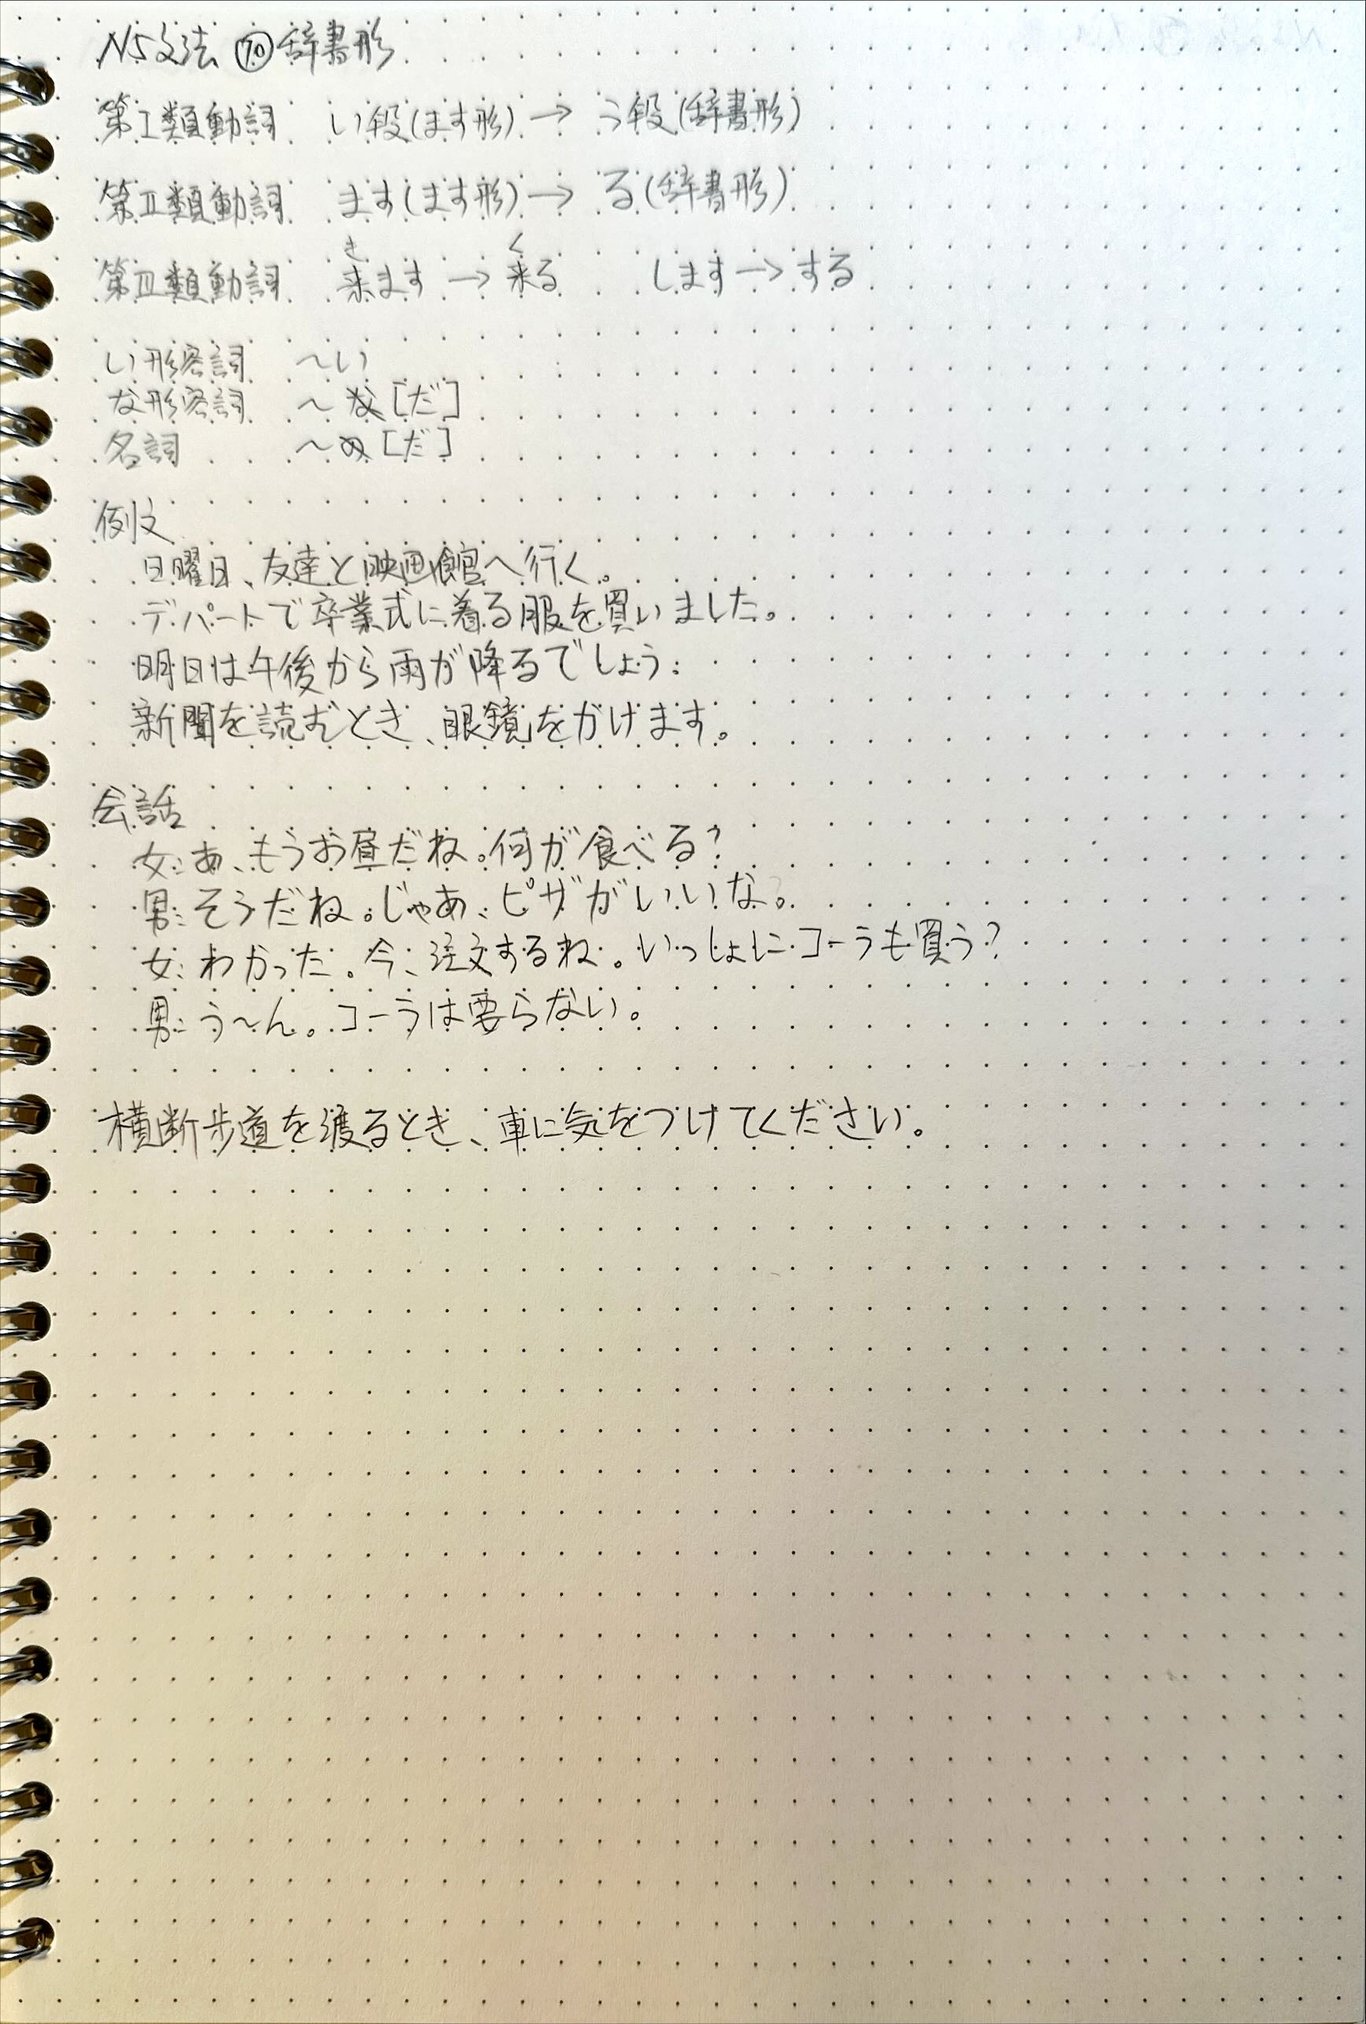 N5文法 ⑦⓪ 辞書形
第Ⅰ類動詞 い段(ます形) → う段(辞書形)
第Ⅱ類動詞 ます(ます形) → る(辞書形)
き く
第Ⅲ類動詞 来ます → 来る します → する
い形容詞 〜い
な形容詞 〜な[だ]
名詞 〜の[だ]
例文
日曜日、友達と映画館へ行く。
デパートで卒業式に着る服を買いました。
明日は午後から雨が降るでしょう。
新聞を読むとき、眼鏡をかけます。
会話
女:あ、もうお昼だね。何が食べる?
男:そうだね。じゃあ、ピザがいいな。
女:わかった。今、注文するね。いっしょにコーラも買う?
男:う〜ん。コーラは要らない。
横断歩道を渡るとき、車に気をつけてください。